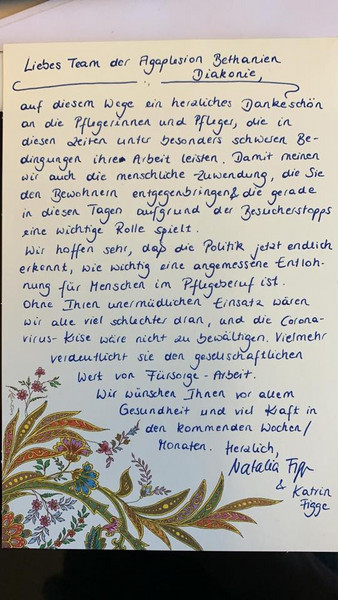 Liebes Team der Agaplesion Bethanien
Diakonie,
auf diesem Wege ein herzliches Dankeschön
an die Pflegerinnen und Pfleger, die in
diesen Zeiten unter besonders schweren Be-
dingungen ihre Arbeit leisten. Damit meinen
wir auch die menschliche Zuwendung, die Sie
den Bewohnern entgegenbringen & die gerade
in diesen Tagen aufgrund der Besucherstopps
eine wichtige Rolle spielt.
Wir hoffen sehr, daß die Politik jetzt endlich
erkennt, wie wichtig eine angemessene Entloh-
nung für Menschen im Pflegeberuf ist.
Ohne Ihren unermüdlichen Einsatz wären
wir alle viel schlechter dran, und die Corona-
virus-Krise wäre nicht zu bewältigen. Vielmehr
verdeutlicht sie den gesellschaftlichen
Wert von Fürsorge-Arbeit.
Wir wünschen Ihnen vor allem
Gesundheit und viel Kraft in
den kommenden Wochen/
Monaten. Herzlich,
Natalia
& Katrin
Figge